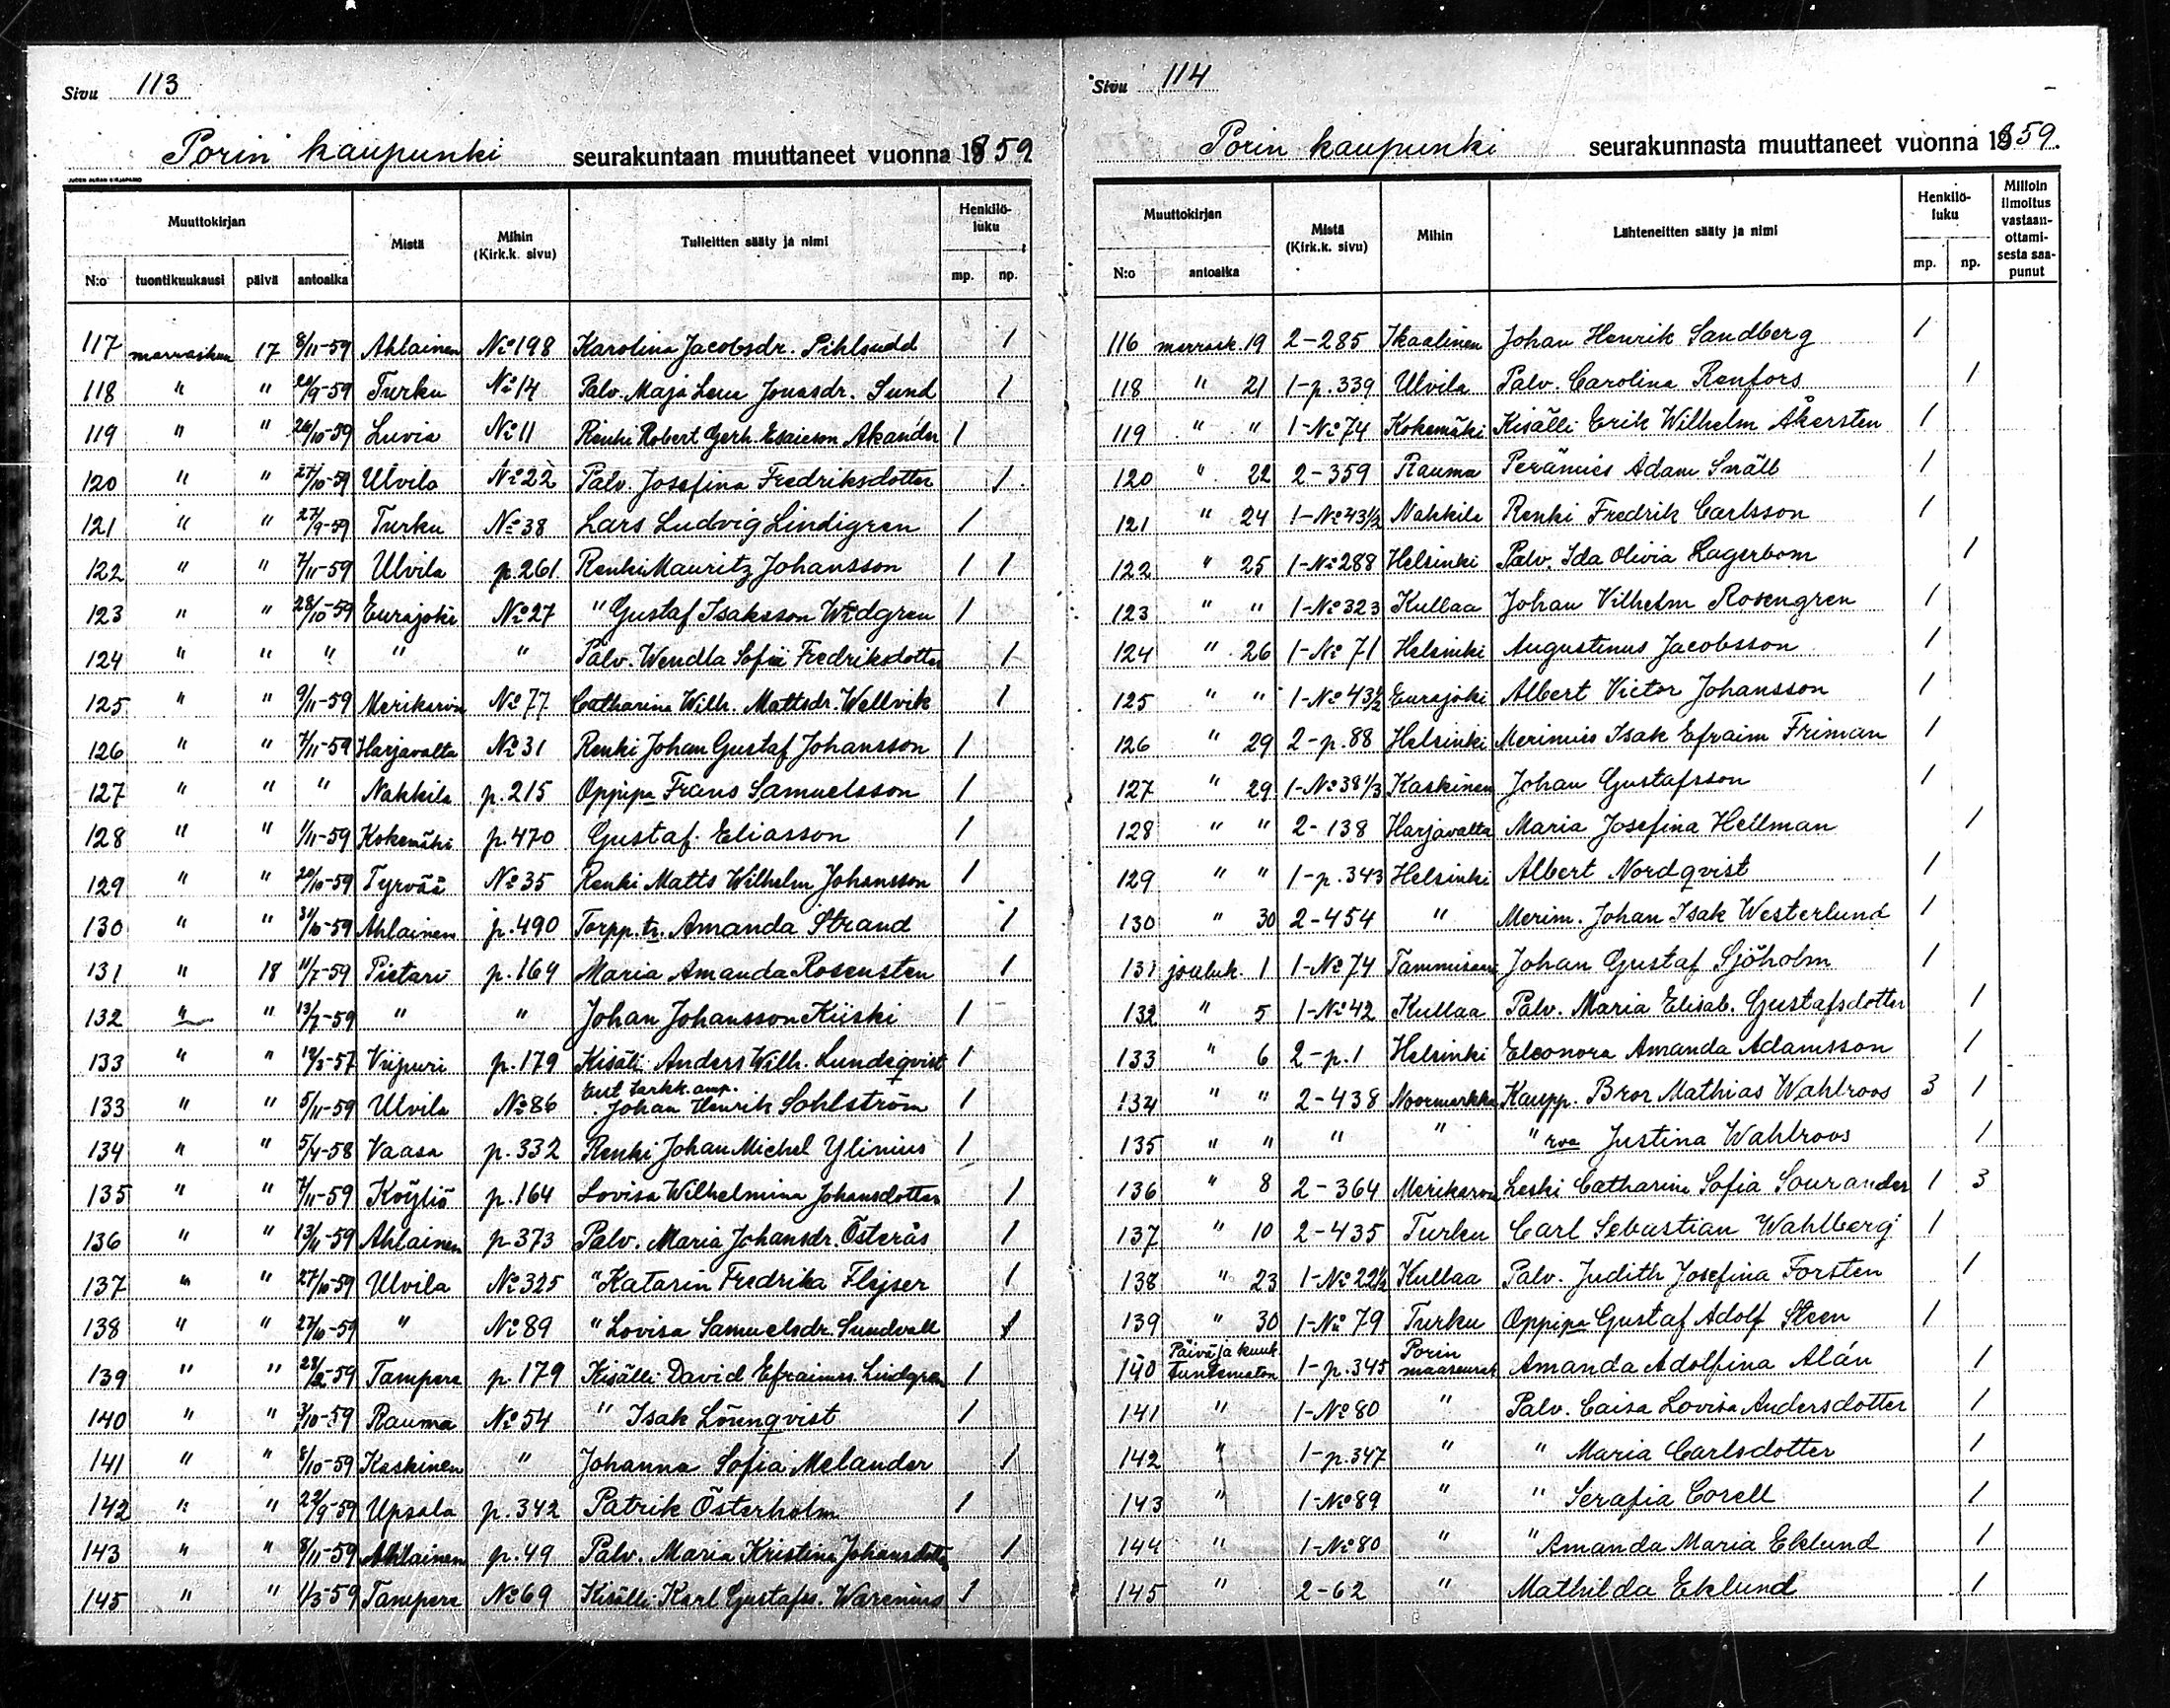 Sivu 113
Porin kaupunki seurakuntaan muuttaneet vuonna 1859
Muuttokirjan Mistä Mihin (Kirk.k. sivu) Tulleitten sääty ja nimi Henkilö-luku
N:o tuontikuukausi päivä antoaika mp. np.
117 marraskuu 17 8/11-59 Ahlainen No 198 Karolina Jacobsdr. Pihlsudd 1
118 " " 22/9-59 Turku No 14 Palv. Maja Lena Jonasdr. Sund 1
119 " " 26/10-59 Luvia No 11 Renki Robert Gerh. Esaieson Akander 1
120 " " 27/10-59 Ulvila No 22 Palv. Josefina Fredriksdotter 1
121 " " 27/9-59 Turku No 38 Lars Ludvig Lindigren 1
122 " " 7/11-59 Ulvila p.261 Renki Mauritz Johansson 1 1
123 " " 28/10-59 Eurajoki No 27 " Gustaf Isaksson Widgren 1
124 " " " " " Palv. Wendla Sofia Fredriksdotter 1
125 " " 9/11-59 Merikarvia No 77 Catharina Wilh. Mattsdr. Wellvik 1
126 " " 7/11-59 Harjavalta No 31 Renki Johan Gustaf Johansson 1
127 " " " Nakkila p.215 Oppipa Frans Samuelsson 1
128 " " 1/11-59 Kokemäki p.470 Gustaf Eliasson 1
129 " " 20/10-59 Tyrvää No 35 Renki Matts Wilhelm Johansson 1
130 " " 31/10-59 Ahlainen p.490 Torpp. tr. Amanda Strand 1
131 " 18 11/7-59 Pietari p.169 Maria Amanda Rosensten 1
132 " " 13/7-59 " " Johan Johansson Kiiski 1
133 " " 12/3-57 Viipuri p.179 Kisälli Anders Wilh. Lundeqvist 1
133 " " 5/11-59 Ulvila No 86 Ent. tarkk. amp. Johan Henrik Sohlström 1
134 " " 5/4-58 Vaasa p.332 Renki Johan Michel Ylinius 1
135 " " 7/11-59 Köyliö p.164 Lovisa Wilhelmina Johansdotter 1
136 " " 13/11-59 Ahlainen p.373 Palv. Maria Johansdr. Österås 1
137 " " 27/10-59 Ulvila No 325 " Katarin Fredrika Flejser 1
138 " " 27/10-59 " No 89 " Lovisa Samuelsdr. Sundvall 1
139 " " 28/2-59 Tampere p.179 Kisälli David Efraimss. Lindgren 1
140 " " 3/10-59 Rauma No 54 " Isak Lönnqvist 1
141 " " 8/10-59 Kaskinen " Johanna Sofia Melander 1
142 " " 22/9-59 Upsala p.342 Patrik Österholm 1
143 " " 8/11-59 Ahlainen p.49 Palv. Maria Kristina Johansdotter 1
145 " " 1/3-59 Tampere No 69 Kisälli Karl Gustafss. Warenius 1
Sivu 114
Porin kaupunki seurakunnasta muuttaneet vuonna 1859.
Muuttokirjan Mistä (Kirk.k. sivu) Mihin Lähteneitten sääty ja nimi Henkilö-luku Milloin ilmoitus vastaan-ottami-sesta saa-punut
N:o antoaika mp. np.
116 marrask. 19 2-285 Ikaalinen Johan Henrik Sandberg 1
118 " 21 1-p.339 Ulvila Palv. Carolina Renfors 1
119 " " 1-No 74 Kokemäki Kisälli Erik Wilhelm Åkersten 1
120 " 22 2-359 Rauma Perämies Adam Snäll 1
121 " 24 1-No 43 1/2 Nakkila Renki Fredrik Carlsson 1
122 " 25 1-No 288 Helsinki Palv. Ida Olivia Lagerbom 1
123 " " 1-No 323 Kullaa Johan Vilhelm Rosengren 1
124 " 26 1-No 71 Helsinki Augustinus Jacobsson 1
125 " " 1-No 43 1/2 Eurajoki Albert Victor Johansson 1
126 " 29 2-p.88 Helsinki Merimies Isak Efraim Friman 1
127 " 29 1-No 38 1/3 Kaskinen Johan Gustafsson 1
128 " " 2-138 Harjavalta Maria Josefina Hellman 1
129 " " 1-p.343 Helsinki Albert Nordqvist 1
130 " 30 2-454 " Merim. Johan Isak Westerlund 1
131 jouluk. 1 1-No 74 Tammisaari Johan Gustaf Sjöholm 1
132 " 5 1-No 42 Kullaa Palv. Maria Elisab. Gustafsdotter 1
133 " 6 2-p.1 Helsinki Eleonora Amanda Adamsson 1
134 " " 2-438 Noormarkku Kaupp. Bror Mathias Wahlroos 3 1
135 " " " " " rva Justina Wahlroos 1
136 " 8 2-364 Merikarvia Leski Catharina Sofia Sourander 1 3
137 " 10 2-435 Turku Carl Sebastian Wahlberg 1
138 " 23 1-No 22 1/2 Kullaa Palv. Judith Josefina Forsten 1
139 " 30 1-No 79 Turku Oppipa Gustaf Adolf Steen 1
140 Päivä ja kuuk. tuntematon 1-p.345 Porin maaseurak. Amanda Adolfina Alén 1
141 " 1-No 80 " Palv. Caisa Lovisa Andersdotter 1
142 " 1-p.347 " " Maria Carlsdotter 1
143 " 1-No 89 " " Serafia Corell 1
144 " 1-No 80 " " Amanda Maria Eklund 1
145 " 2-62 " Mathilda Eklund 1